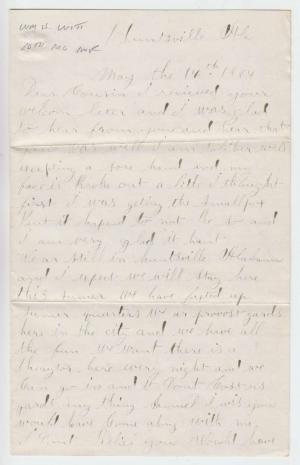 WM H WITT
10TH MO INF
Huntsville Ala
May the 14th 1864
Dear Cousin I recieved your
welcom letter and I was glad
to hear from you and hear that
you was well I am tolibler well
excepting a sore hand and my
face is broke out a litle I thought
first I was geting the smallpox
but it hapend to not be so and
I am very glad it haint
We ar still in huntsville Alabama
and I expect we will stay here
this sumer We have fixed up
sumer quarters We ar provost gards
here in the city and we have all
the fun we want there is a
theater here every night and we
can go in and it dont cost us
gards any thing Samuel I wis you
would have come along with me
I think you would have